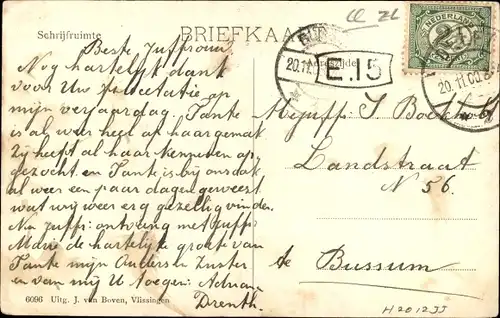 CC ZL
Schrijfruimte BRIEFKAART
Adreszijde
NEDERLAND
2½
20.11
E.15
20.11.09.8
Beste Juffrouw
Nog hartelijk dank
voor Uw felicitatie op
mijn verjaardag. Tante
is al weer heel op haar gemak
Zij heeft al haar kennissen op-
gezocht en Tante is bij ons dak
al weer een paar dagen geweest
wat wij weer erg gezellig vinden.
Nu juffr: ontvang met Juffr:
Marie de hartelijke groeten van
Tante mijn Ouders en Zuster
en van mij U toegen: Adriana
Drenth.
Mejuffr: J. Boekholt
Landstraat
N 56.
te Bussum
6096 Uitg. J. van Boven, Vlissingen
H2012JJ